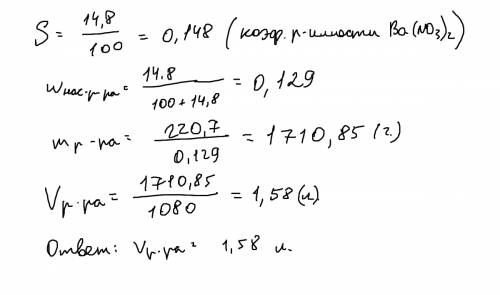 S = 14,8 / 100 = 0,148 (коэф. р-имости Ba(NO3)2)
wнас.р-ра = 14.8 / 100 + 14,8 = 0,129
mр-ра = 220,7 / 0,129 = 1710,85 (г)
Vр-ра = 1710,85 / 1080 = 1,58 (л)
Ответ: Vр-ра = 1,58 л.